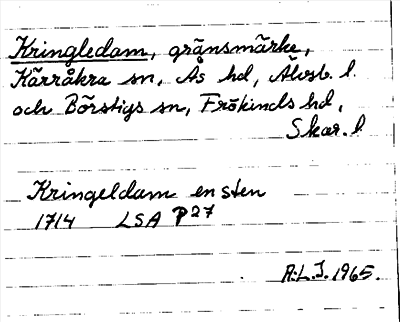 Kringledam, gränsmärke,
Kärråkra sn, Ås hd, Älvsb. l.
och Börstigs sn, Frökinds hd,
Skar. l.
Kringeldam en sten
1714 LSA P27
A.L.J. 1965.